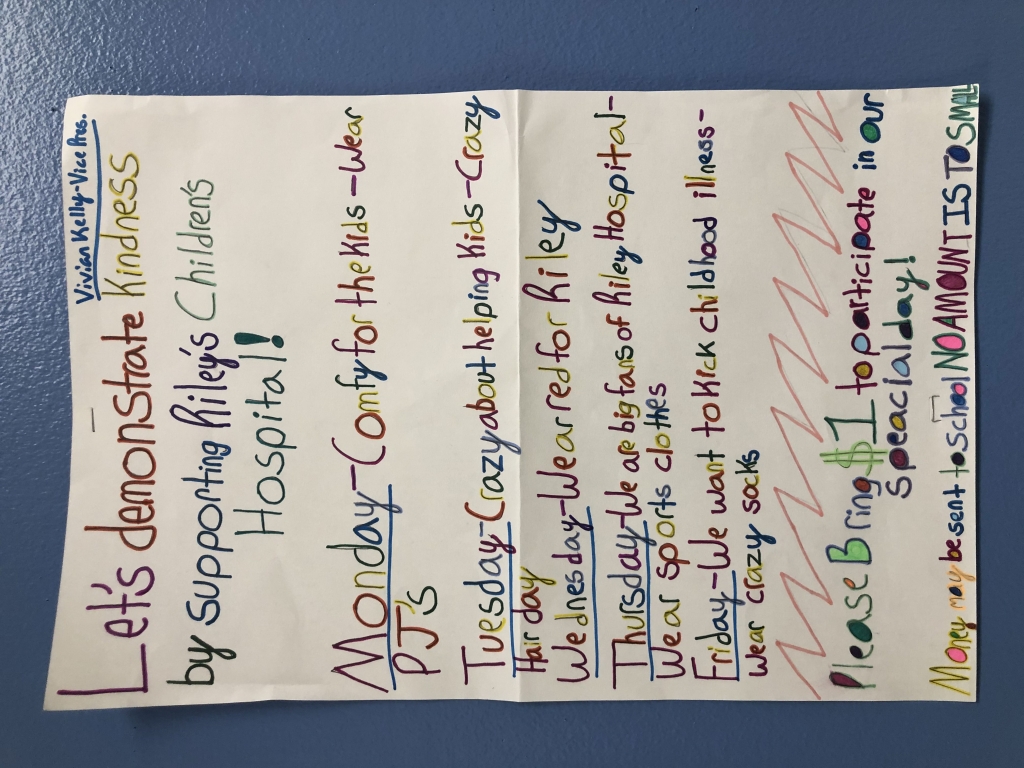 Vivian Kelly-Vice Pres.
Let's demonstrate Kindness
by supporting Riley's Children's
Hospital!
Monday-Comfy for the Kids-Wear
PJ's
Tuesday-Crazy about helping Kids-Crazy
Hair day
Wednesday-We are red for Riley
Thursday-We are big fans of Riley Hospital-
Wear sports clothes
Friday-We want to Kick childhood illness-
wear crazy socks
Please Bring $1 to participate in our
Speacial day!
Money may be sent to school NO AMOUNT IS TO SMALL